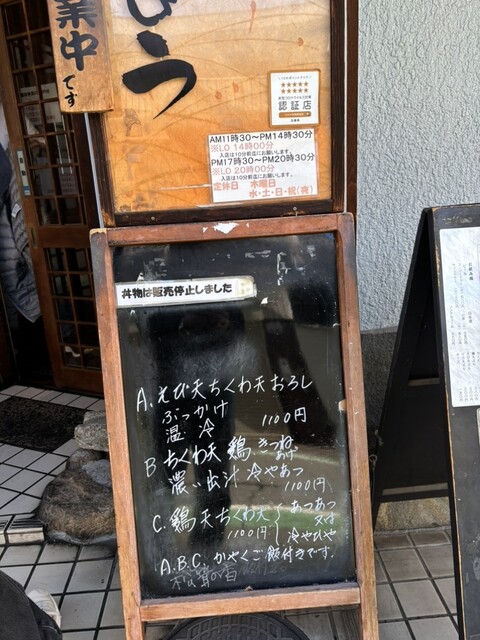 業中
です
びう
認証店
AM11時30～PM14時30分
※LO 14時00分
入店は10分前迄にお願いします。
PM17時30～PM20時30分
※LO 20時00分
入店は10分前迄にお願いします。
定休日 木曜日
水・土・日・祝(夜)
丼物は販売停止しました
A. えび天ちくわ天おろし
ぶっかけ
温・冷 1100円
B ちくわ天 鶏 きつね
あげ
濃い出汁 冷やあつ
1100円
C. 鶏天ちくわ天 あつあつ
1100円 又は
冷やひや
A.B.C. かやくご飯付きです。